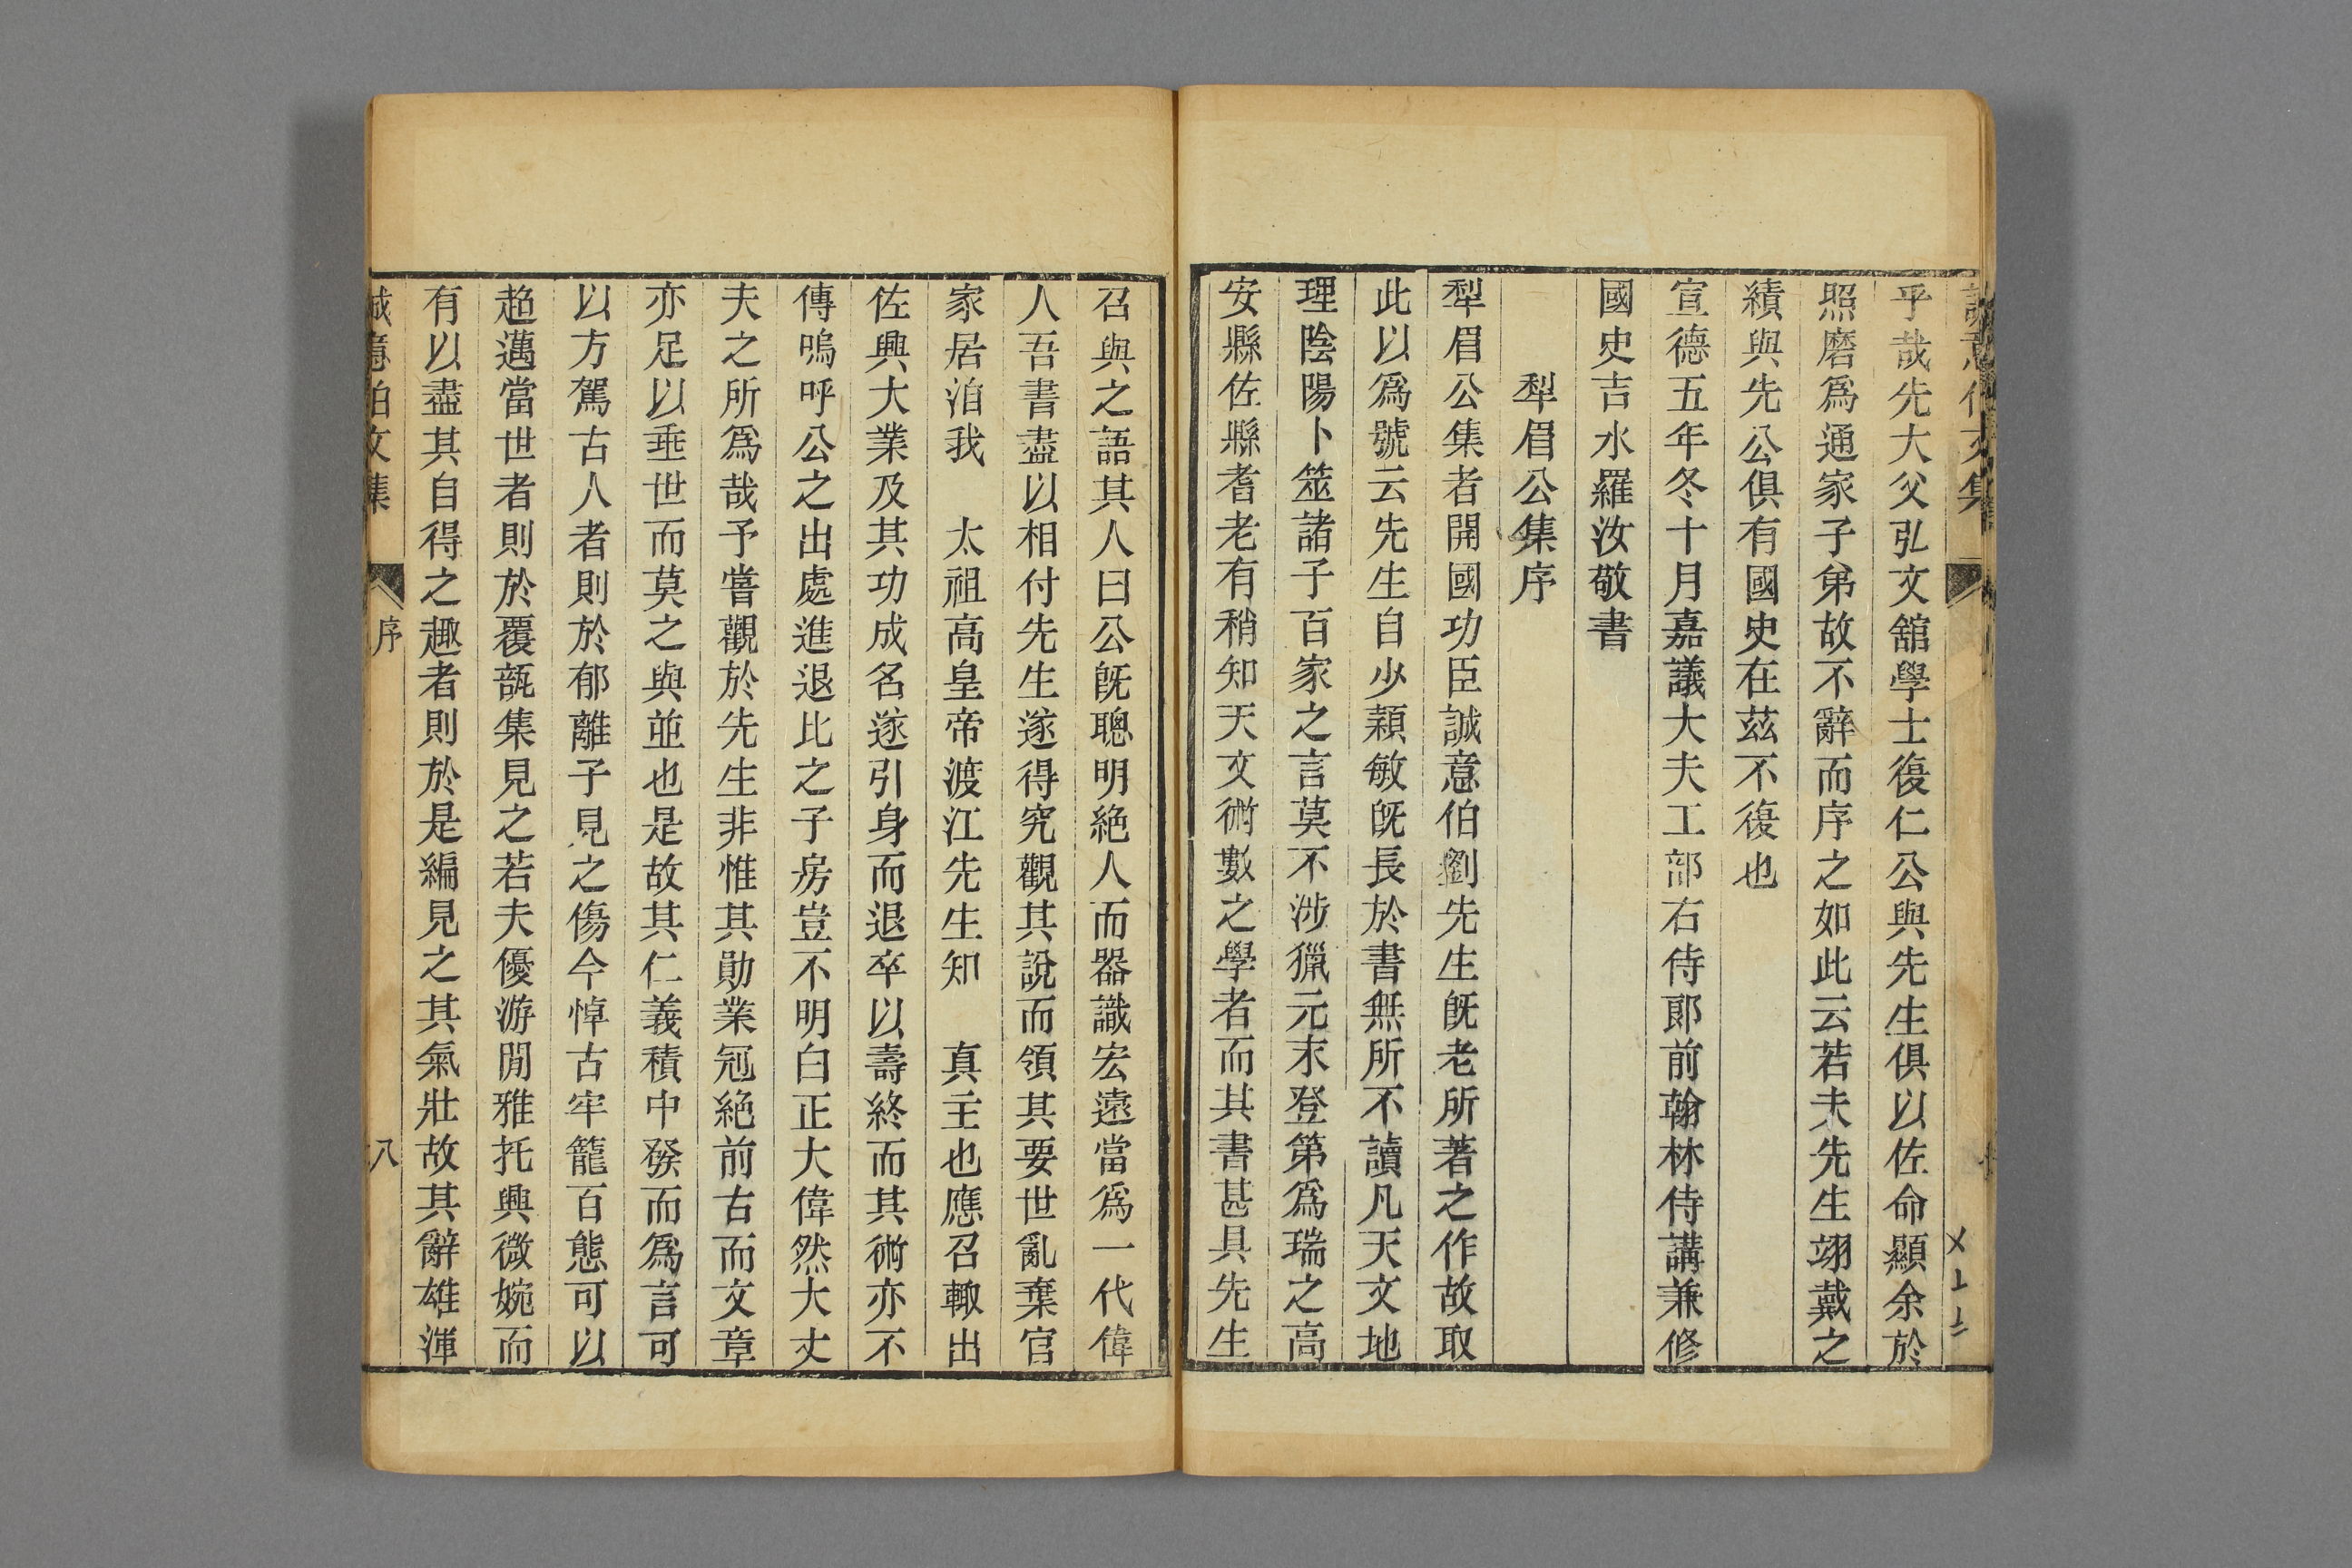 乎哉先大父弘文舘學士復仁公與先生俱以佐命顯余於
照磨爲通家子弟故不辭而序之如此云若夫先生翊戴之
績與先公俱有國史在茲不復也
宣德五年冬十月嘉議大夫工部右侍郎前翰林侍講兼修
國史吉水羅汝敬書
犁眉公集序
犁眉公集者開國功臣誠意伯劉先生旣老所著之作故取
此以爲號云先生自少穎敏旣長於書無所不讀凡天文地
理陰陽卜筮諸子百家之言莫不涉獵元末登第爲瑞之高
安縣佐縣耆老有稍知天文術數之學者而其書甚具先生
召與之語其人曰公旣聰明絶人而器識宏遠當爲一代偉
人吾書盡以相付先生遂得究觀其說而領其要世亂棄官
家居洎我　太祖高皇帝渡江先生知　真主也應召輙出
佐興大業及其功成名遂引身而退卒以壽終而其術亦不
傳嗚呼公之出處進退比之子房豈不明白正大偉然大丈
夫之所爲哉予嘗觀於先生非惟其勛業冠絶前古而文章
亦足以垂世而莫之與並也是故其仁義積中發而爲言可
以方駕古人者則於郁離子見之傷今悼古牢籠百態可以
趋邁當世者則於覆瓿集見之若夫優游閒雅托興微婉而
有以盡其自得之趣者則於是編見之其氣壯故其辭雄渾
誠意伯文集　序　八